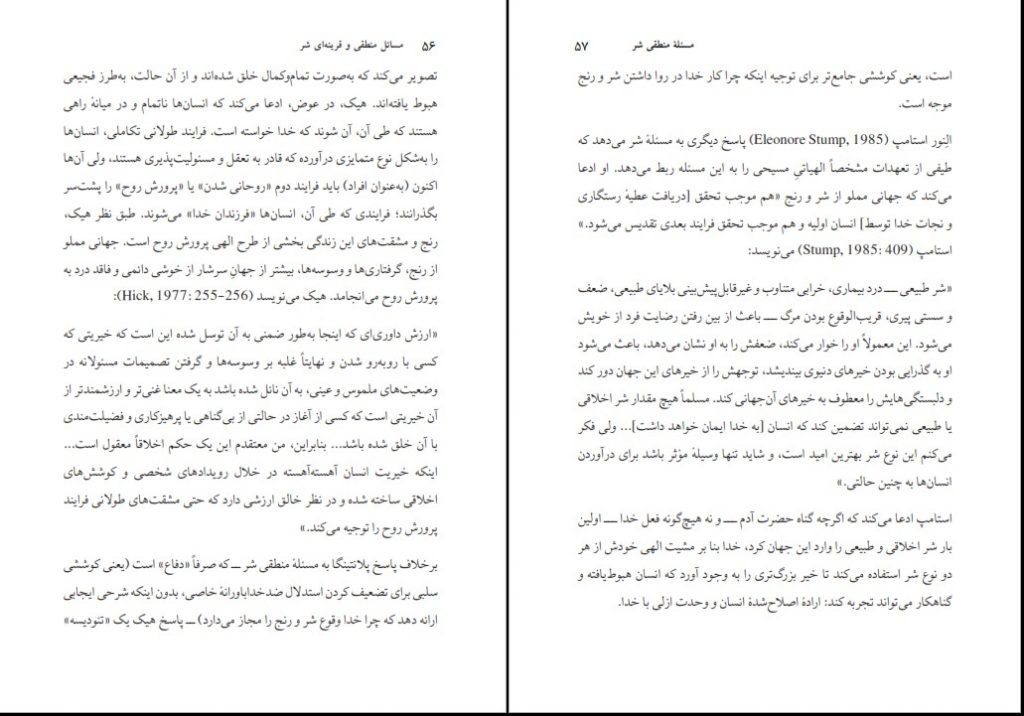 ۵۶ مسائل منطقی و قرینه‌ای شر
تصویر می‌کند که به‌صورت تمام‌وکمال خلق شده‌اند و از آن حالت، به‌طرز فجیعی
هبوط یافته‌اند. هیک، در عوض، ادعا می‌کند که انسان‌ها ناتمام و در میانهٔ راهی
هستند که طی آن، آن شوند که خدا خواسته است. فرایند طولانی تکاملی، انسان‌ها
را به‌شکل نوع متمایزی درآورده که قادر به تعقل و مسئولیت‌پذیری هستند، ولی آن‌ها
اکنون (به‌عنوان افراد) باید فرایند دوم «روحانی شدن» یا «پرورش روح» را پشت‌سر
بگذرانند؛ فرایندی که طی آن، انسان‌ها «فرزندان خدا» می‌شوند. طبق نظر هیک،
رنج و مشقت‌های این زندگی بخشی از طرح الهی پرورش روح است. جهانی مملو
از رنج، گرفتاری‌ها و وسوسه‌ها، بیشتر از جهانِ سرشار از خوشی دائمی و فاقد درد به
پرورش روح می‌انجامد. هیک می‌نویسد (Hick, 1977: 255-256):
«ارزش داوری‌ای که اینجا به‌طور ضمنی به آن توسل شده این است که خیریتی که
کسی با روبه‌رو شدن و نهایتاً غلبه بر وسوسه‌ها و گرفتن تصمیمات مسئولانه در
وضعیت‌های ملموس و عینی، به آن نائل شده باشد به یک معنا غنی‌تر و ارزشمندتر از
آن خیریتی است که کسی از آغاز در حالتی از بی‌گناهی یا پرهیزکاری و فضیلت‌مندی
با آن خلق شده باشد... بنابراین، من معتقدم این یک حکم اخلاقاً معقول است...
اینکه خیریت انسان آهسته‌آهسته در خلال رویدادهای شخصی و کوشش‌های
اخلاقی ساخته شده و در نظر خالق ارزشی دارد که حتی مشقت‌های طولانی فرایند
پرورش روح را توجیه می‌کند.»
برخلاف پاسخ پلانتینگا به مسئلهٔ منطقی شر ــ که صرفاً «دفاع» است (یعنی کوششی
سلبی برای تضعیف کردن استدلال ضدخداباورانهٔ خاصی، بدون اینکه شرحی ایجابی
ارائه دهد که چرا خدا وقوع شر و رنج را مجاز می‌دارد) ــ پاسخ هیک یک «تئودیسه»
مسئلهٔ منطقی شر ۵۷
است، یعنی کوششی جامع‌تر برای توجیه اینکه چرا کار خدا در روا داشتن شر و رنج
موجه است.
اِلِنور استامپ (Eleonore Stump, 1985) پاسخ دیگری به مسئلهٔ شر می‌دهد که
طیفی از تعهدات مشخصاً الهیاتیِ مسیحی را به این مسئله ربط می‌دهد. او ادعا
می‌کند که جهانی مملو از شر و رنج «هم موجب تحقق [دریافت عطیهٔ رستگاری
و نجات خدا توسط] انسان اولیه و هم موجب تحقق فرایند بعدی تقدیس می‌شود.»
استامپ (Stump, 1985: 409) می‌نویسد:
«شر طبیعی ــ درد بیماری، خرابی متناوب و غیرقابل‌پیش‌بینی بلایای طبیعی، ضعف
و سستی پیری، قریب‌الوقوع بودن مرگ ــ باعث از بین رفتن رضایت فرد از خویش
می‌شود. این معمولاً او را خوار می‌کند، ضعفش را به او نشان می‌دهد، باعث می‌شود
او به گذرایی بودن خیرهای دنیوی بیندیشد، توجهش را از خیرهای این جهان دور کند
و دلبستگی‌هایش را معطوف به خیرهای آن‌جهانی کند. مسلماً هیچ مقدار شر اخلاقی
یا طبیعی نمی‌تواند تضمین کند که انسان [به خدا ایمان خواهد داشت]... ولی فکر
می‌کنم این نوع شر بهترین امید است، و شاید تنها وسیلهٔ مؤثر باشد برای درآوردن
انسان‌ها به چنین حالتی.»
استامپ ادعا می‌کند که اگرچه گناه حضرت آدم ــ و نه هیچ‌گونه فعل خدا ــ اولین
بار شر اخلاقی و طبیعی را وارد این جهان کرد، خدا بنا بر مشیت الهی خودش از هر
دو نوع شر استفاده می‌کند تا خیر بزرگ‌تری را به وجود آورد که انسان هبوط‌یافته و
گناهکار می‌تواند تجربه کند: ارادهٔ اصلاح‌شدهٔ انسان و وحدت ازلی با خدا.